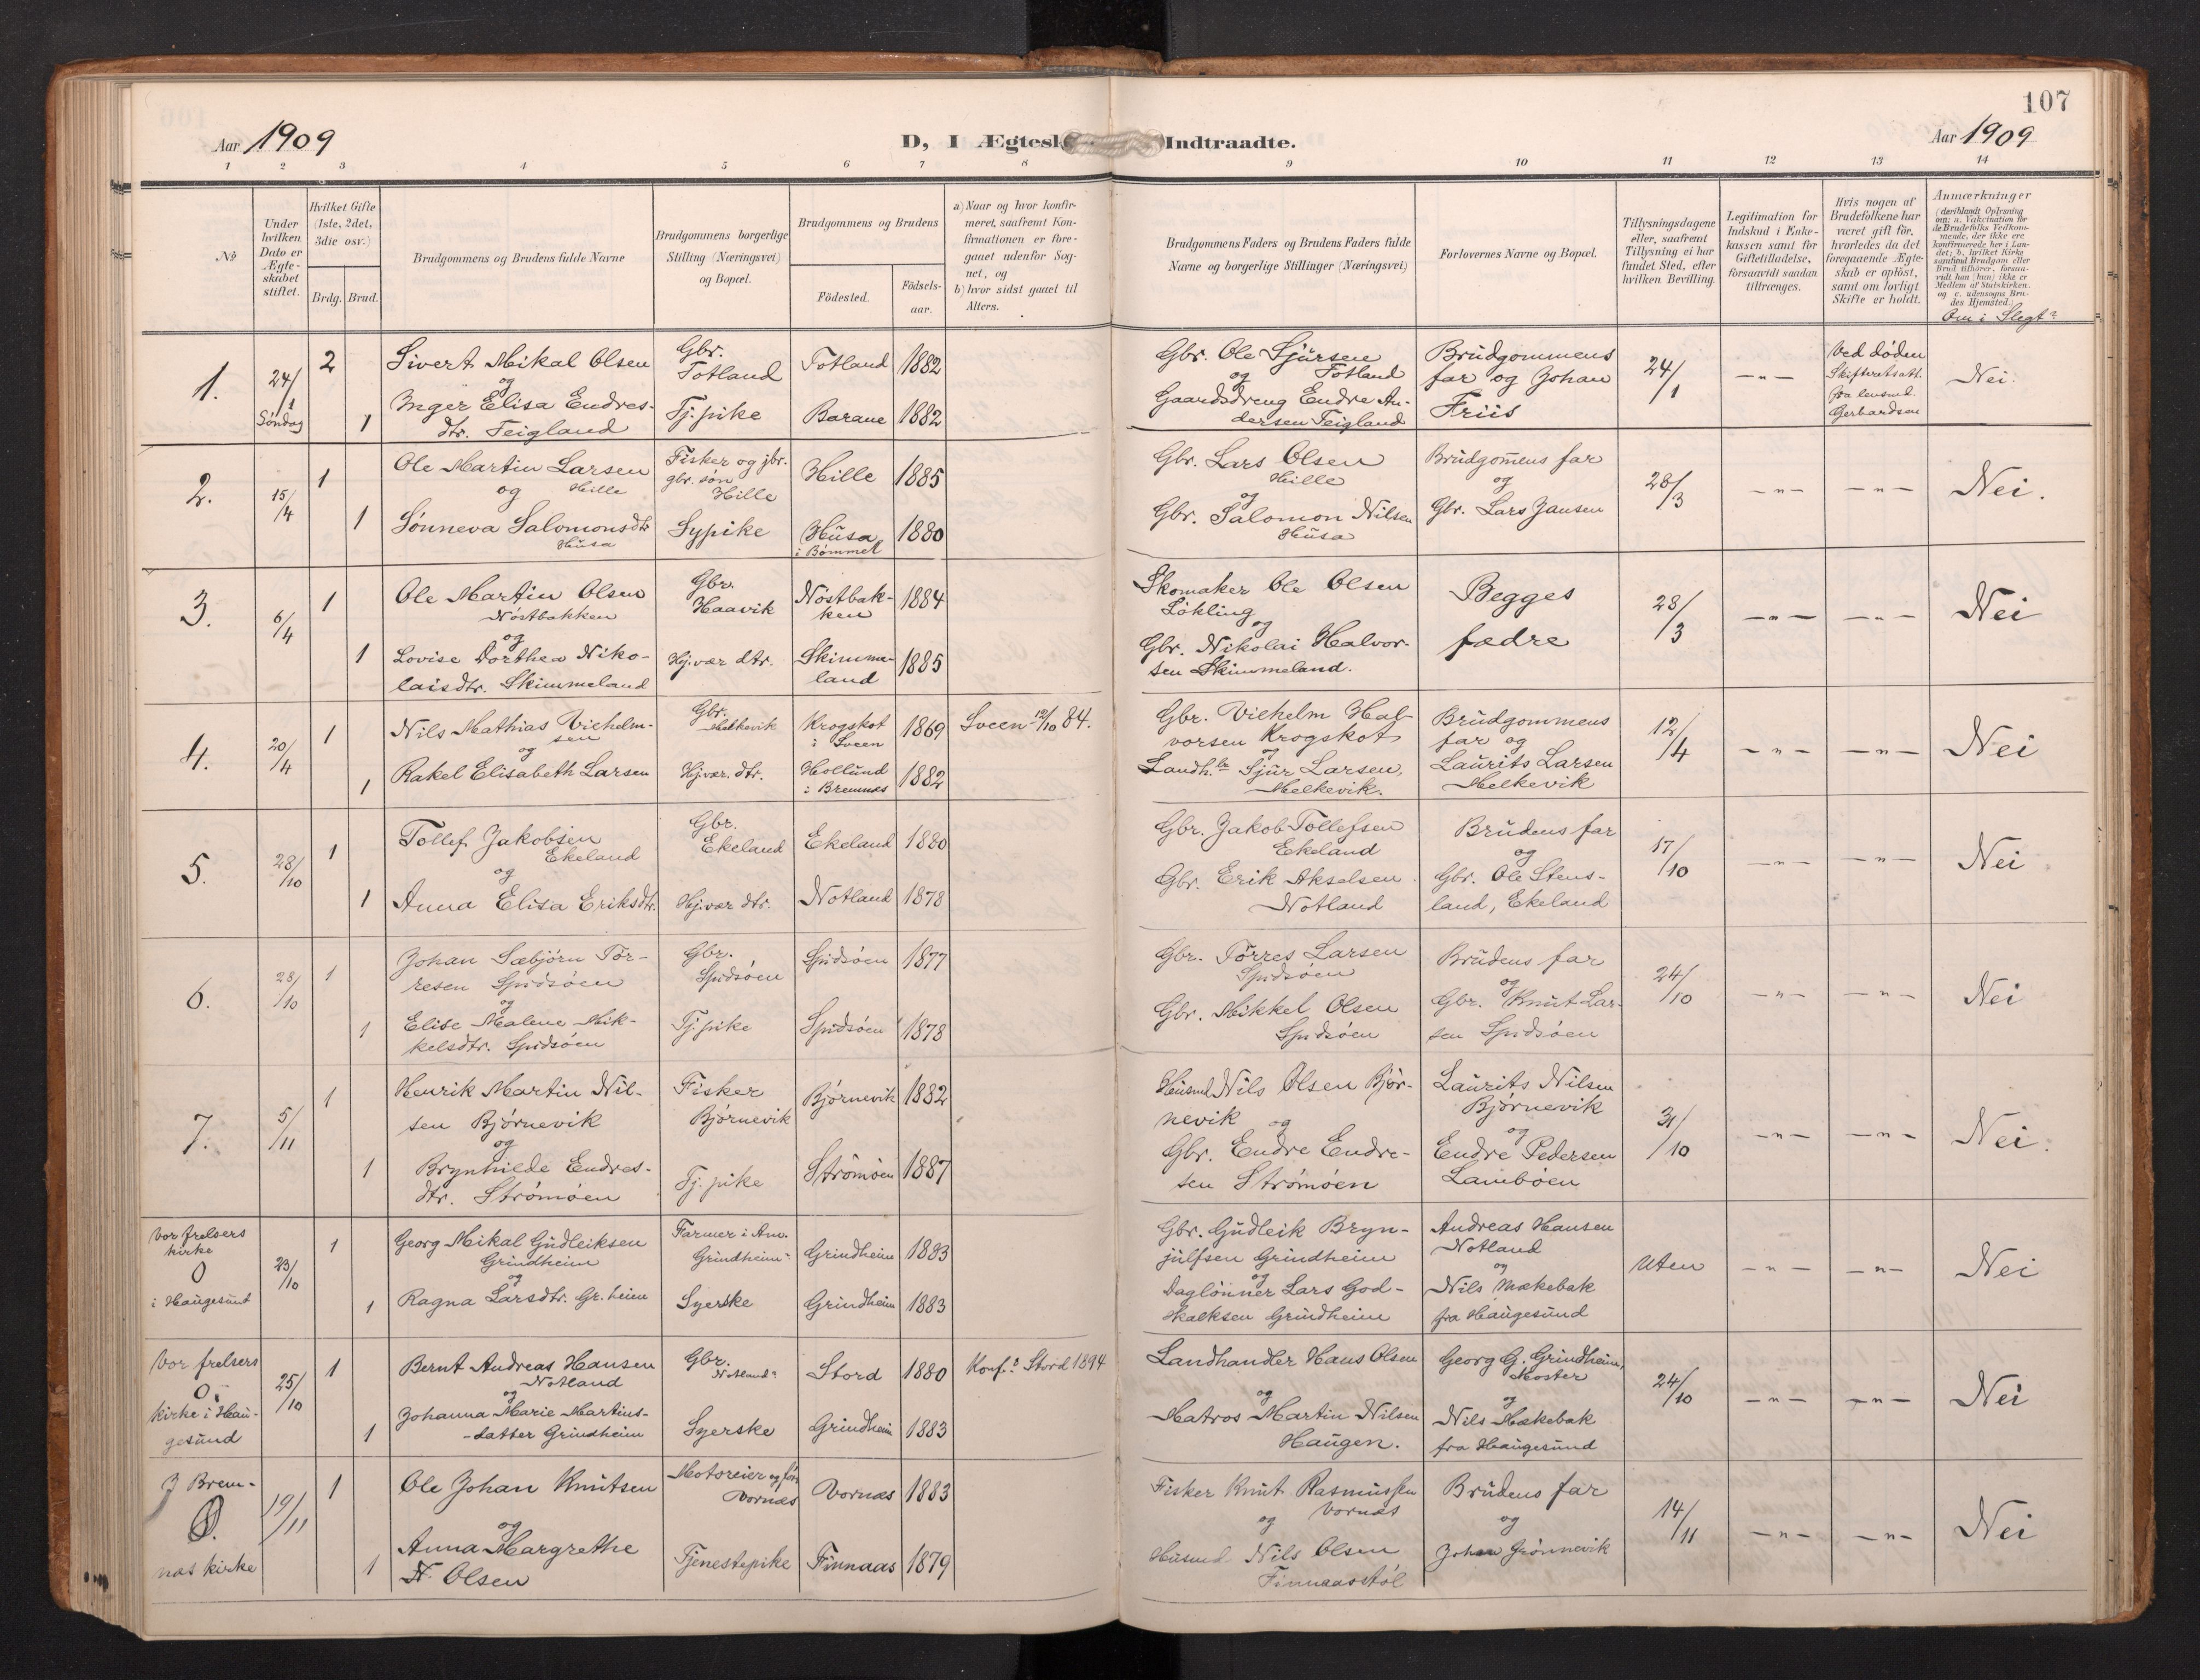 107
Aar 1909
D, I Ægtesk Indtraadte.
Aar 1909
1 2 3 4 5 6 7 8 9 10 11 12 13 14
No
Under hvilken Dato er Ægteskabet stiftet.
Hvilket Gifte (1ste, 2det, 3die osv.)
Brdg. Brud.
Brudgommens og Brudens fulde Navne
Brudgommens borgerlige Stilling (Næringsvei) og Bopæl.
Brudgommens og Brudens
Fødested.
Fødsels-aar.
a) Naar og hvor konfir-
meret, saafremt Kon-
firmationen er fore-
gaaet udenfor Sog-
net, og
b) hvor sidst gaaet til
Alters.
Brudgommens Faders og Brudens Faders fulde
Navne og borgerlige Stillinger (Næringsvei)
Forlovernes Navne og Bopæl.
Tillysningsdagene
eller, saafremt
Tillysning ei har
fundet Sted, efter
hvilken Bevilling.
Legitimation for
Indskud i Enke-
kassen samt for
Giftetilladelse,
forsaavidt saadan
tiltrænges.
Hvis nogen af
Brudefolkene har
været gift før,
hvorledes da det
foregaaende Ægte-
skab er opløst,
samt om lovligt
Skifte er holdt.
Anmærkninger
(deriblandt Oplysning
om: a. Vakcination for
de Brudefolks Vedkom-
mende, der ikke ere
konfirmerede her i Lan-
det; b. hvilket Kirke
samfund Brudgom eller
Brud tilhører, forsaa-
vidt han (hun) ikke er
Medlem af Statskirken.
og c. udensogns Bru-
des Hjemsted.)
Om i Slegt?
1.
24/1
Søndag
2
1
Sivert Mikal Olsen
og
Inger Elisa Endres-
dtr. Teigland
Gbr.
Totland
Tj. pike
Totland 1882
Barane 1882
Gbr. Ole Sjursen
Totland
og
Gaardsdreng Endre An-
dersen Teigland
Brudgommens
far og Johan
Friis
24/1
-"-
Ved døden
Skifteratsatt.
fra lensmd.
Gerhardsen
Nei.
2.
15/4
1
1
Ole Martin Larsen
og Hille
Sønneva Salomonsdtr
Husa
Fisker og jbr.
gbr. søn
Hille
Sypike
Hille 1885
Husa 1880
i Bømmel
Gbr. Lars Olsen
Hille
og
Gbr. Salomon Nilsen
Husa
Brudgomens far
og
Gbr. Lars Jansen
28/3
-"- -"-
Nei.
3.
6/4
1
1
Ole Martin Olsen
Nøstbakken
og
Lovise Dorthea Niko-
laisdtr. Skimmeland
Gbr.
Haavik
Hj. vær dtr.
Nøstbak-
ken 1884
Skimme-
land 1885
Skomaker Ole Olsen
Løkling
og
Gbr. Nikolai Halvor-
sen Skimmeland.
Begges
fædre
28/3
-"- -"-
Nei
4.
20/4
1
1
Nils Mathias Vilhelm-
sen
og
Rakel Elisabeth Larsen
Gbr.
Melkevik
Hj. vær. dtr.
Krogskot
i Sveen 1869
Hollund
i Bremnes 1882
Sveen 12/10 84.
Gbr. Vilhelm Hal-
vorsen Krogskot
og
Landh.lr Sjur Larsen,
Melkevik.
Brudgommens
far og
Laurits Larsen
Melkevik
12/4
-"- -"-
Nei
5.
28/10
1
1
Tollef Jakobsen
Ekeland
og
Anna Elisa Eriksdtr.
Gbr.
Ekeland
Hj. vær dtr.
Ekeland 1880
Notland 1878
Gbr. Jakob Tollefsen
Ekeland
Gbr. Erik Akselsen
Notland
Brudens far
og
Gbr. Ole Stens-
land, Ekeland
17/10
-"- -"-
Nei
6.
28/10
1
1
Johan Sæbjørn Tør-
resen Spidsøen
og
Elise Malene Mik-
kelsdtr. Spidsøen
Gbr.
Spidsøen
Tj. pike
Spidsøen 1877
Spidsøen 1878
Gbr. Tørres Larsen
Spidsøen
Gbr. Mikkel Olsen
Spidsøen
Brudens far
og
Gbr. Knut Lar-
sen Spidsøen
24/10
-"- -"-
Nei
7.
5/11
1
1
Henrik Martin Nil-
sen Bjørnevik
og
Brynhilde Endres-
dtr. Strømøen
Fisker
Bjørnevik
Tj. pike
Bjørnevik 1882
Strømøen 1887
Husmd. Nils Olsen Bjør-
nevik og
Gbr. Endre Endre-
sen Strømøen
Laurits Nilsen
Bjørnevik
og
Endre Pedersen
Lambøen
31/10
-"- -"-
Nei.
Vor frelsers
kirke
0
i Haugesunt
23/10
1
1
Georg Mikal Gudleiksen
Grindheim
og
Ragna Larsdtr. Gr. heim
Farmer i Am.
Grindheim
Syerske
Grindheim 1883
Grindheim 1883
Gbr. Gudleik Bryn-
julfsen Grindheim
og
Daglønner Lars God-
skalksen Grindheim
Andreas Hansen
Notland
og
Nils Mækebak
fra Haugesund
Uten
-"- -"-
Nei
Vor frelsers
0
kirke i Hau-
gesund
25/10
1
1
Bernt Andreas Hansen
Notland
og
Johanna Marie Martins-
datter Grindheim
Gbr.
Notland
Syerske
Stord 1880
Grindheim 1883
Konf. Stord 1894
Landhandler Hans Olsen
og
Matros Martin Nilsen
Haugen.
Georg G. Grindheim,
Moster
og
Nils Mækebak
fra Haugesund
24/10
-"- -"-
Nei
I Brem-
0.
nes kirke
19/11
1
1
Ole Johan Knutsen
og
Anna Margrethe
N. Olsen
Motoreier og
Vornæs
Tjenestepike
Vornæs 1883
Finnaas 1879
Fisker Knut Rasmussen
Vornæs
og
Husmd Nils Olsen
Finnaasstøl
Brudens far
og
Johan Grønnevik
14/11
-"- -"-
Nei